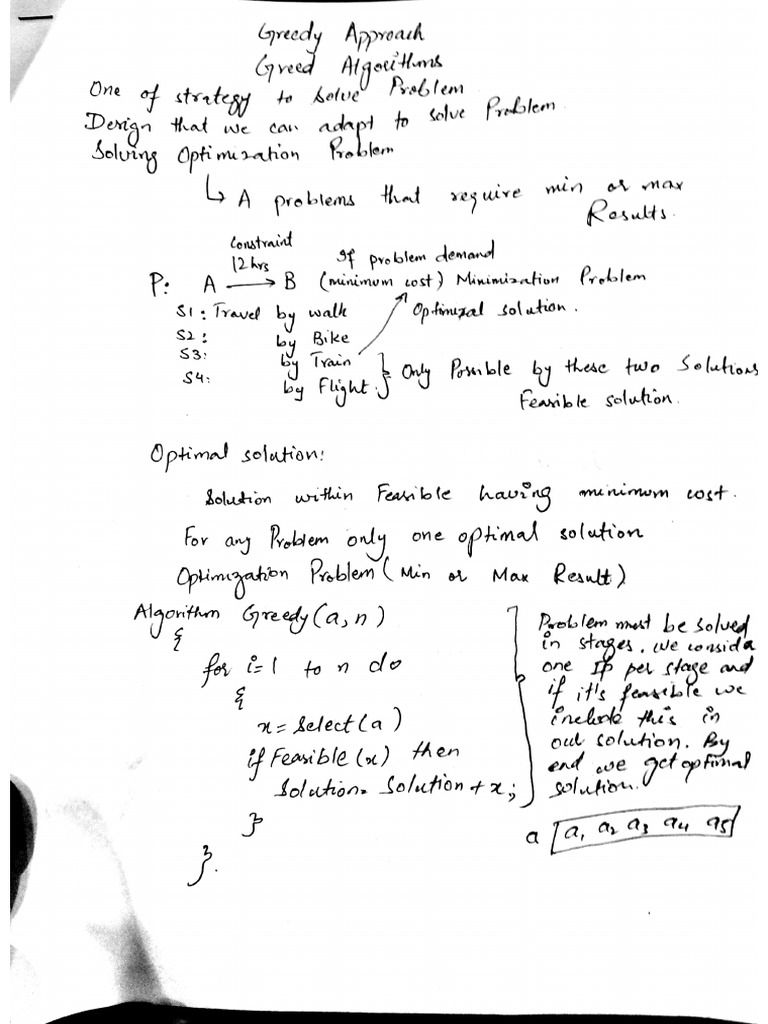 Greedy Approach
Greed Algorithms
One of strategy to solve Problem
Design that we can adapt to solve Problem.
Solving Optimization Problem
↳ A problems that require min or max
Results.
Constraint
12 hrs
If problem demand
P: A → B (minimum cost) Minimization Problem
S1: Travel by walk
Optimizal solution.
S2: by Bike
S3: by Train
S4: by Flight } Only Possible by these two Solutions
Feasible solution.
Optimal solution:
Solution within Feasible having minimum cost.
For any Problem only one optimal solution
Optimization Problem (Min or Max Result)
Algorithm Greedy(a,n)
{
for i=1 to n do
{
x=Select(a)
if Feasible(x) then
Solution= Solution+x;
}
}.
Problem must be solved
in stages. we conside
one Ip per stage and
if it's feasible we
include this in
out solution. By
end we get optimal
solution.
a [a1 a2 a3 a4 a5]